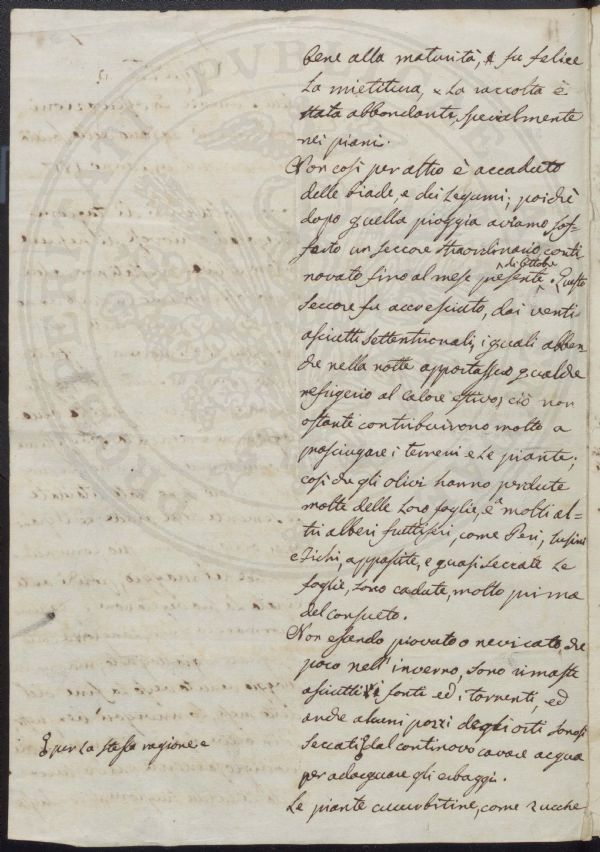 bene alla maturità, fu felice
la mietitura, e la raccolta è
stata abbondante, specialmente
nei piani.
Non così per altro è accaduto
delle biade, e dei legumi; poichè
dopo quella pioggia aviamo sof=
ferto un seccore straordinario conti
novato fino al mese presente di Ottobre. Questo
seccore fu accresciuto, dai venti
asciutti settentrionali, i quali abben
chè nella notte apportassero qualche
refrigerio al calore estivo, ciò non
ostante contribuirono molto a
prosciugare i terreni e le piante;
così che gli olivi hanno perdute
molte delle loro foglie, e a molti al=
tri alberi fruttiferi, come Peri, Susini
e Fichi, appassite, e quasi seccate le
foglie, sono cadute, molto prima
del consueto.
Non essendo piovuto o nevicato, che
poco nell'inverno, sono rimaste
asciutti i fonti ed i torrenti, ed
anche alcuni pozzi degli orti sonosi
seccati dal continovo cavare acqua
per adacquare gli erbaggi.
Le piante cucurbitine, come zucche
per la stessa ragione e
PROPRIETATI PVBLICAE